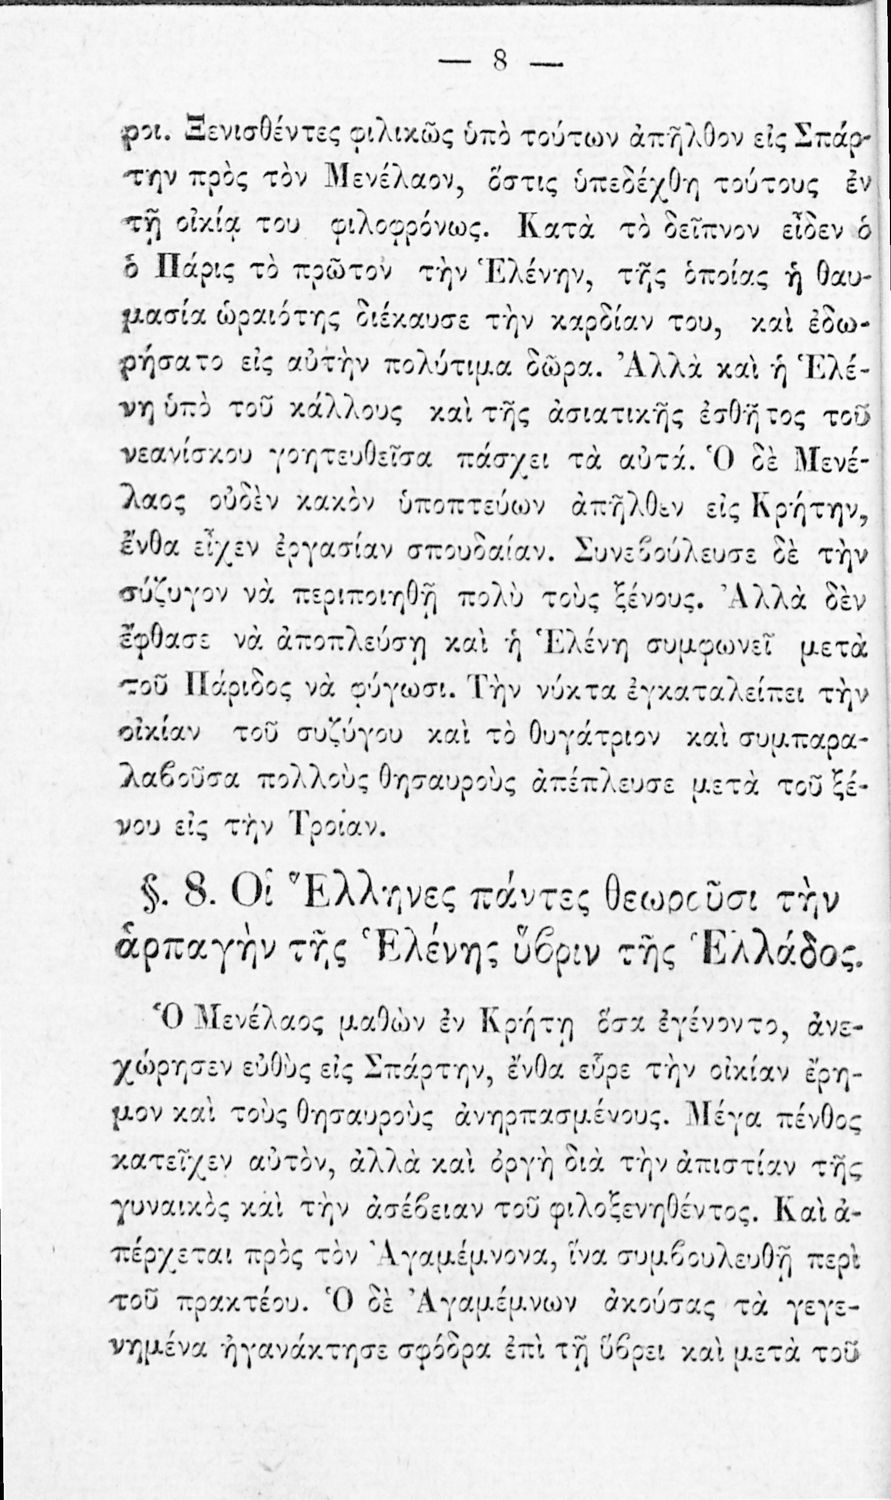 — 8 —
ροι. Ξενισθέντες φιλικῶς ὑπὸ τούτων ἀπῆλθον εἰς Σπάρ-
την πρὸς τὸν Μενέλαον, ὅστις ὑπεδέχθη τούτους ἐν
τῇ οἰκίᾳ του φιλοφρόνως. Κατὰ τὸ δεῖπνον εἶδεν ὁ
ὁ Πάρις τὸ πρῶτον τὴν Ἑλένην, τῆς ὁποίας ἡ θαυ-
μασία ὡραιότης διέκαυσε τὴν καρδίαν του, καὶ ἐδω-
ρήσατο εἰς αὐτὴν πολύτιμα δῶρα. Ἀλλὰ καὶ ἡ Ἑλέ-
νη ὑπὸ τοῦ κάλλους καὶ τῆς ἀσιατικῆς ἐσθῆτος τοῦ
νεανίσκου γοητευθεῖσα πάσχει τὰ αὐτά. Ὁ δὲ Μενέ-
λαος οὐδὲν κακὸν ὑποπτεύων ἀπῆλθεν εἰς Κρήτην,
ἔνθα εἶχεν ἐργασίαν σπουδαίαν. Συνεβούλευσε δὲ τὴν
σύζυγον νὰ περιποιηθῇ πολὺ τοὺς ξένους. Ἀλλὰ δὲν
ἔφθασε νὰ ἀποπλεύσῃ καὶ ἡ Ἑλένη συμφωνεῖ μετὰ
τοῦ Πάριδος νὰ φύγωσι. Τὴν νύκτα ἐγκαταλείπει τὴν
οἰκίαν τοῦ συζύγου καὶ τὸ θυγάτριον καὶ συμπαρα-
λαβοῦσα πολλοὺς θησαυροὺς ἀπέπλευσε μετὰ τοῦ ξέ-
νου εἰς τὴν Τροίαν.
§. 8. Οἱ Ἕλληνες πάντες θεωροῦσι τὴν
ἁρπαγὴν τῆς Ἑλένης ὕβριν τῆς Ἑλλάδος.
Ὁ Μενέλαος μαθὼν ἐν Κρήτῃ ὅσα ἐγένοντο, ἀνε-
χώρησεν εὐθὺς εἰς Σπάρτην, ἔνθα εὗρε τὴν οἰκίαν ἔρη-
μον καὶ τοὺς θησαυροὺς ἀνηρπασμένους. Μέγα πένθος
κατεῖχεν αὐτὸν, ἀλλὰ καὶ ὀργὴ διὰ τὴν ἀπιστίαν τῆς
γυναικὸς καὶ τὴν ἀσέβειαν τοῦ φιλοξενηθέντος. Καὶ ἀ-
πέρχεται πρὸς τὸν Ἀγαμέμνονα, ἵνα συμβουλευθῇ περὶ
τοῦ πρακτέου. Ὁ δὲ Ἀγαμέμνων ἀκούσας τὰ γεγε-
νημένα ἠγανάκτησε σφόδρα ἐπὶ τῇ ὕβρει καὶ μετὰ τοῦ